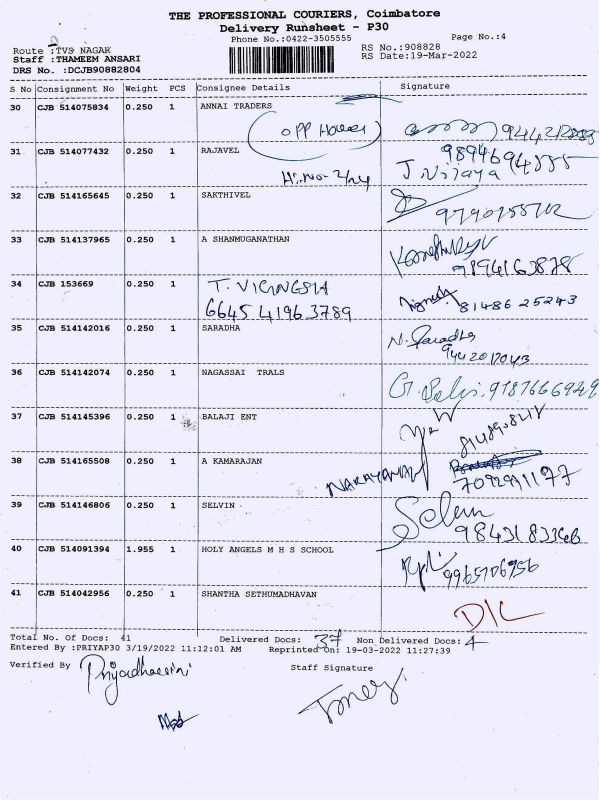 THE PROFESSIONAL COURIERS, Coimbatore
Delivery Runsheet - P30
Phone No.:0422-3505555 Page No.:4
Route :TVS NAGAR RS No.:908828
Staff :THAMEEM ANSARI RS Date:19-Mar-2022
DRS No. :DCJB90882804
S No Consignment No Weight PCS Consignee Details Signature
30 CJB 514075834 0.250 1 ANNAI TRADERS
(OPP House)
31 CJB 514077432 0.250 1 RAJAVEL
J. Vijaya
32 CJB 514165645 0.250 1 SAKTHIVEL
33 CJB 514137965 0.250 1 A SHANMUGANATHAN
34 CJB 153669 0.250 1
6645 4196 3789 81486 25243
35 CJB 514142016 0.250 1 SARADHA N. Saradha
9442017043
36 CJB 514142074 0.250 1 NAGASSAI TRALS
G. Selvi. 9787666949
37 CJB 514145396 0.250 1 BALAJI ENT
38 CJB 514165508 0.250 1 A KAMARAJAN
NARAYANAN
39 CJB 514146806 0.250 1 SELVIN Selvin
40 CJB 514091394 1.955 1 HOLY ANGELS M H S SCHOOL
41 CJB 514042956 0.250 1 SHANTHA SETHUMADHAVAN
D/L
Total No. Of Docs: 41 Delivered Docs: 37 Non Delivered Docs: 4
Entered By :PRIYAP30 3/19/2022 11:12:01 AM Reprinted On: 19-03-2022 11:27:39
Verified By Staff Signature
Priyadharsini